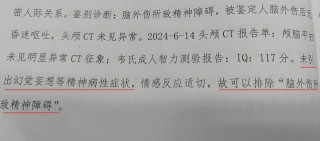 密人际关系。鉴别诊断：脑外伤所致精神障碍，被鉴定人脑外伤后
昏迷呕吐，头颅CT未见异常。2024-6-14头颅CT报告单：颅脑平
未见明显异常CT征象；韦氏成人智力测验报告：IQ：117分。未引
出幻觉妄想等精神病性症状，情感反应适切，故可以排除“脑外伤所
致精神障碍”。